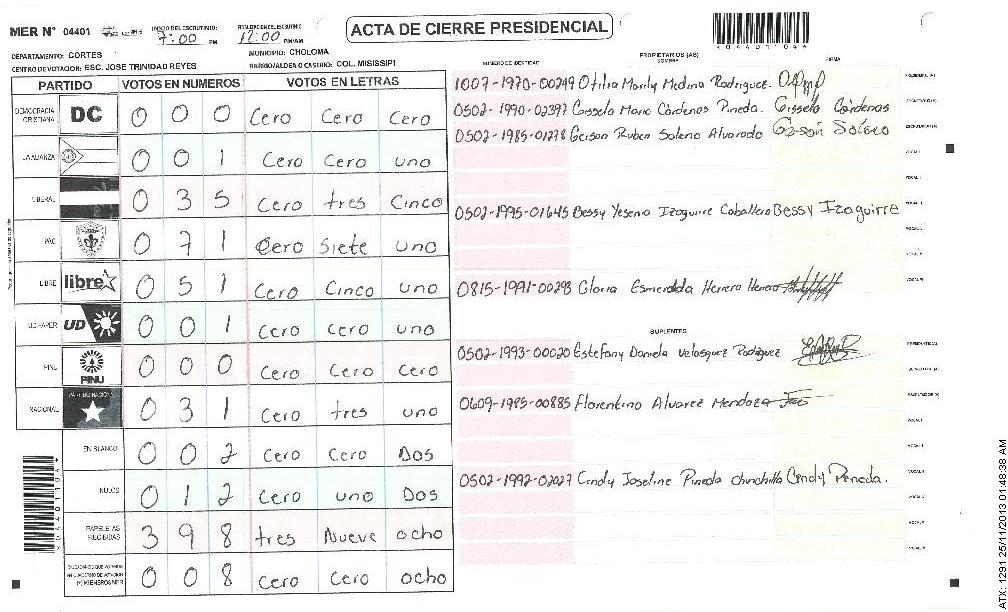 MER Nº 04401
INICIO DEL ESCRUTINIO: 7:00 PM
FINALIZACION DEL ESCRUTINIO 12:00 PM/AM
ACTA DE CIERRE PRESIDENCIAL
DEPARTAMENTO: CORTES
MUNICIPIO: CHOLOMA
CENTRO DE VOTACION: ESC. JOSE TRINIDAD REYES
BARRIO/ALDEA O CASERIO: COL. MISISSIPI
PARTIDO VOTOS EN NUMEROS VOTOS EN LETRAS
DEMOCRACIA CRISTIANA DC 0 0 0 Cero Cero Cero
LA ALIANZA 0 0 1 Cero Cero uno
LIBERAL 0 3 5 Cero tres Cinco
PAC 0 7 1 Cero Siete uno
LIBRE libre 0 5 1 Cero Cinco uno
UD FAPER UD 0 0 1 Cero Cero uno
PINU PINU 0 0 0 Cero Cero Cero
NACIONAL PARTIDO NACIONAL 0 3 1 Cero tres uno
EN BLANCO 0 0 2 Cero Cero Dos
NULOS 0 1 2 Cero uno Dos
PAPELETAS RECIBIDAS 3 9 8 tres Nueve ocho
CIUDADANOS QUE VOTARON EN CUADERNO DE VOTACION (+) MIEMBROS MER 0 0 8 Cero Cero ocho
PROPIETARIOS (AS)
NUMERO DE IDENTIDAD NOMBRE FIRMA
1007-1970-00249 Otilia Marily Medina Rodriguez PRESIDENTE (A)
0502-1990-02397 Gissela Maria Cárdenas Pineda. Gissela Cárdenas SECRETARIO (A)
0502-1985-01278 Gerson Ruben Soleno Alvarado Gerson Soleno ESCRUTADOR (A)
VOCAL I
0502-1995-01645 Bessy Yesenia Izaguirre Caballero Bessy Izaguirre
0815-1991-00298 Gloria Esmeralda Herrera Herrera
SUPLENTES
0502-1993-00020 Estefany Daniela Velasquez Rodriguez PRESIDENTE (A)
SECRETARIO (A)
0609-1985-00885 Florentino Alvarez Mendoza ESCRUTADOR (A)
VOCAL I
0502-1992-02027 Cindy Joseline Pineda chinchilla Cindy Pineda.
ATX: 1291 25/11/2013 01:48:38 AM